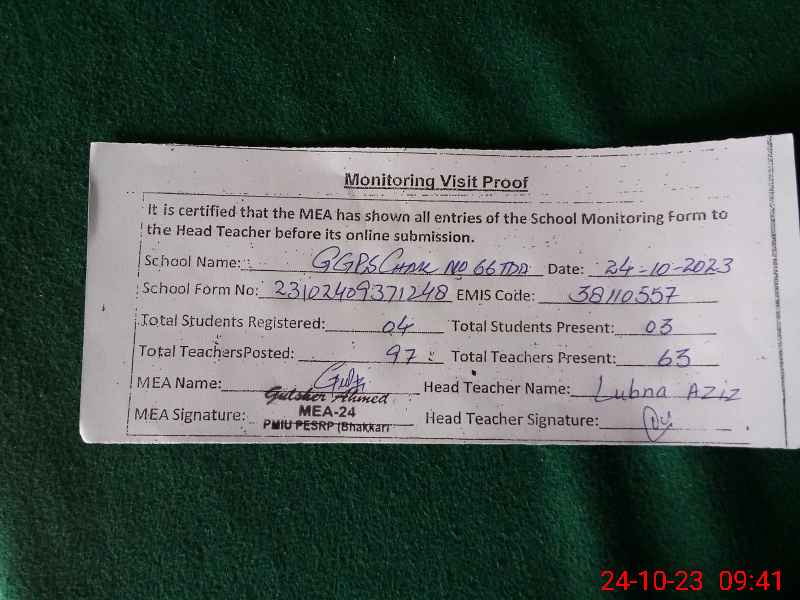 Monitoring Visit Proof
It is certified that the MEA has shown all entries of the School Monitoring Form to
the Head Teacher before its online submission.
School Name: GGPS Chak No 66 TDA Date: 24-10-2023
School Form No: 23102409371248 EMIS Code: 38110557
Total Students Registered: 04 Total Students Present: 03
Total TeachersPosted: 97 Total Teachers Present: 63
MEA Name: Head Teacher Name: Lubna Aziz
Gulsher Ahmed
MEA Signature: MEA-24 Head Teacher Signature:
PMIU PESRP (Bhakkar)
24-10-23 09:41